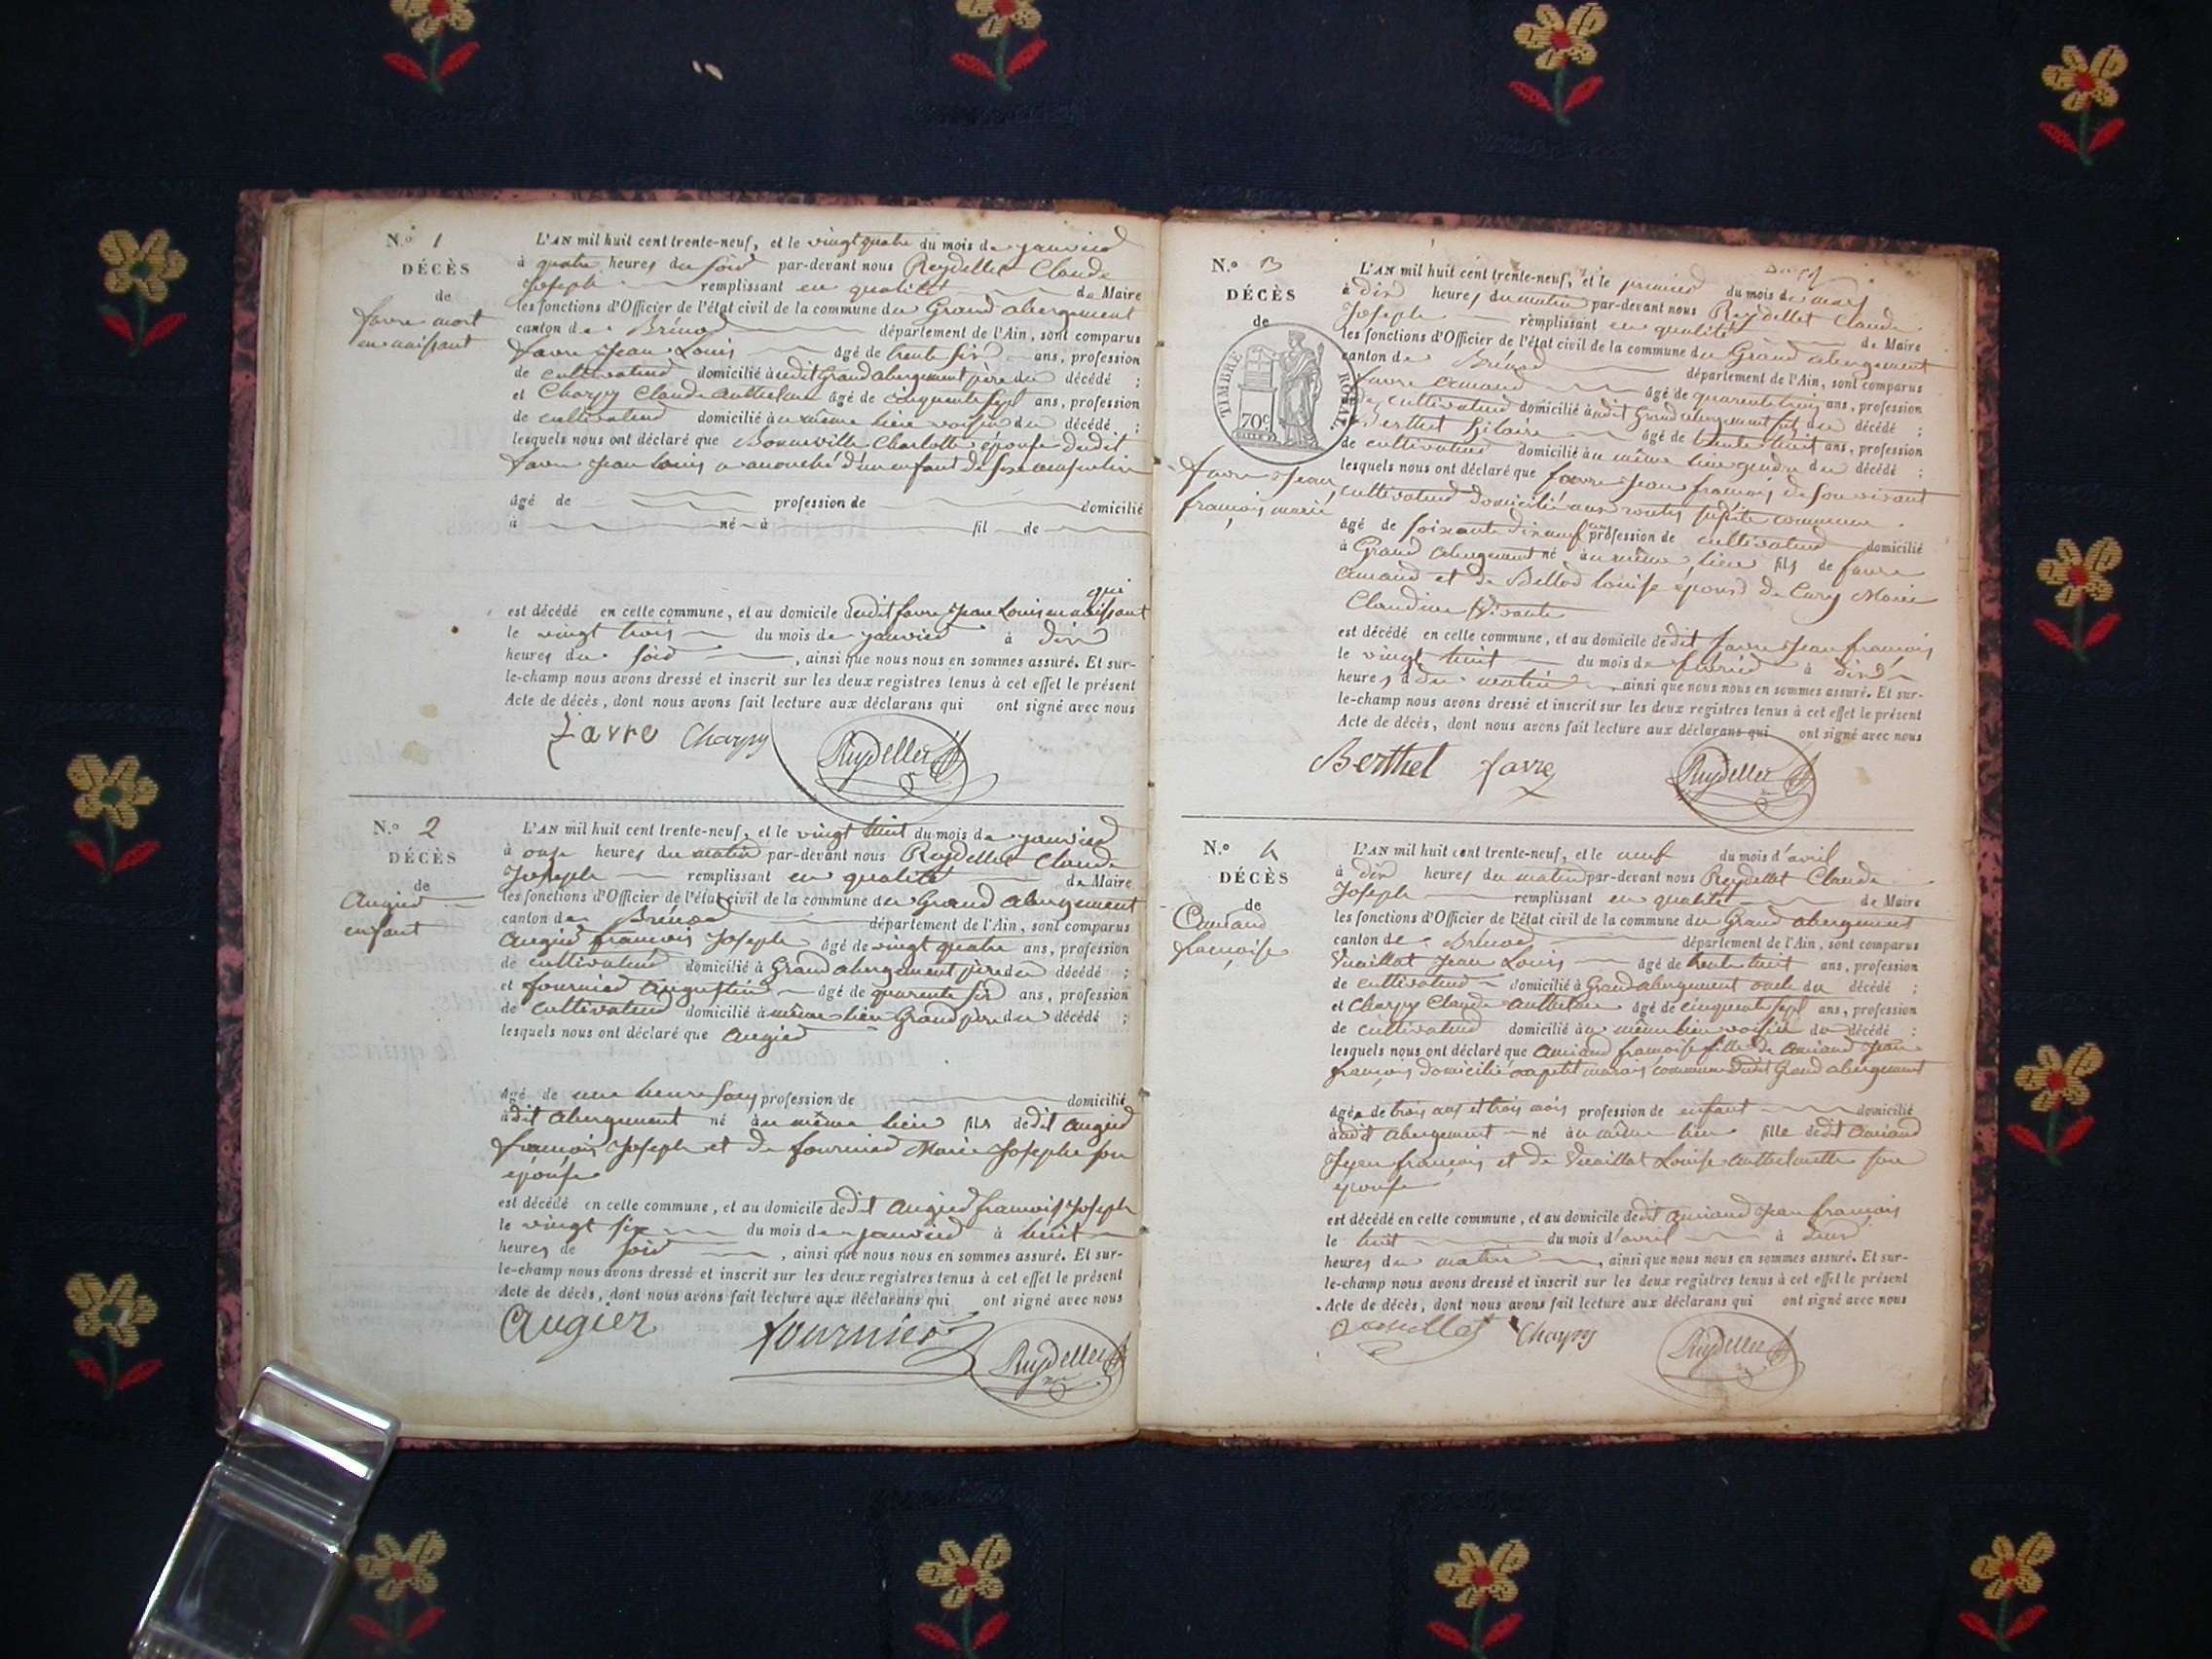 N.º 1
DÉCÈS
de
favre mort
en naissant
L'AN mil huit cent trente-neuf, et le vingt quatre du mois de janvier
à quatre heures du soir par-devant nous Reydellet Claude
Joseph remplissant en qualité de Maire
les fonctions d'Officier de l'état civil de la commune du Grand abergement
canton de Brénod département de l'Ain, sont comparus
favre Jean Louis âgé de trente six ans, profession
de cultivateur domicilié audit Grand abergement père du décédé ;
et Charpy Claude Anthelme âgé de cinquante sept ans, profession
de cultivateur domicilié au même lieu voisin du décédé ;
lesquels nous ont déclaré que Bonneville Charlotte épouse dudit
favre Jean Louis a accouché d'un enfant du sexe masculin
âgé de profession de domicilié
à né à fil de
qui
est décédé en cette commune, et au domicile dudit favre Jean Louis en naissant
le vingt trois du mois de janvier à dix
heures du soir , ainsi que nous nous en sommes assuré. Et sur-
le-champ nous avons dressé et inscrit sur les deux registres tenus à cet effet le présent
Acte de décès, dont nous avons fait lecture aux déclarans qui ont signé avec nous
favre Charpy Reydellet
N.º 2
DÉCÈS
de
Augier
enfant
L'AN mil huit cent trente-neuf, et le vingt huit du mois de janvier
à onze heures du matin par-devant nous Reydellet Claude
Joseph remplissant en qualité de Maire
les fonctions d'Officier de l'état civil de la commune du Grand abergement
canton de Brénod département de l'Ain, sont comparus
Augier francois Joseph âgé de vingt quatre ans, profession
de cultivateur domicilié à Grand abergement père du décédé ;
et fournier Augustin âgé de quarente six ans, profession
de cultivateur domicilié à même lieu Grand père du décédé ;
lesquels nous ont déclaré que Augier
âgé de une heure sans profession de domicilié
à dit abergement né au même lieu fils dedit Augier
françois Joseph et de fournier Marie Josephe son
épouse
est décédé en cette commune, et au domicile dedit Augier francois Joseph
le vingt six du mois de janvier à huit
heures de soir , ainsi que nous nous en sommes assuré. Et sur-
le-champ nous avons dressé et inscrit sur les deux registres tenus à cet effet le présent
Acte de décès, dont nous avons fait lecture aux déclarans qui ont signé avec nous
Augier fournier Reydellet
N.º 3
DÉCÈS
de
TIMBRE ROYAL
70c
favre Jean
françois marie
L'AN mil huit cent trente-neuf, et le premier du mois de mars
à dix heures du matin par-devant nous Reydellet Claude
Joseph remplissant en qualité de Maire
les fonctions d'Officier de l'état civil de la commune du Grand abergement
canton de Brénod département de l'Ain, sont comparus
favre Amand âgé de quarente trois ans, profession
de cultivateur domicilié audit Grand abergement fils du décédé ;
Berthet hilaire âgé de trente huit ans, profession
de cultivateur domicilié au même lieu gendre du décédé ;
lesquels nous ont déclaré que favre Jean francois de son vivant
cultivateur domicilié aux routes susdite commune
âgé de soixante dix neuf ans profession de cultivateur domicilié
à Grand abergement né au même lieu fils de favre
Amand et de Billod louise époux de Cary Marie
Claudine vivante
est décédé en cette commune, et au domicile dedit favre Jean francois
le vingt huit du mois de fevrier à dix
heures du matin , ainsi que nous nous en sommes assuré. Et sur-
le-champ nous avons dressé et inscrit sur les deux registres tenus à cet effet le présent
Acte de décès, dont nous avons fait lecture aux déclarans qui ont signé avec nous
Berthet favre Reydellet
N.º 4
DÉCÈS
de
françoise
L'AN mil huit cent trente-neuf, et le neuf du mois d'avril
à dix heures du matin par-devant nous Reydellet Claude
Joseph remplissant en qualité de Maire
les fonctions d'Officier de l'état civil de la commune du Grand abergement
canton de Brénod département de l'Ain, sont comparus
Vuaillat Jean Louis âgé de trente huit ans, profession
de cultivateur domicilié à Grand abergement oncle du décédé ;
et Charpy Claude Anthelme âgé de cinquante sept ans, profession
de cultivateur domicilié au même lieu voisin du décédé ;
lesquels nous ont déclaré que françoise fille de Jean
françois domicilié au petit marais commune dudit Grand abergement
âgée de trois ans et trois mois profession de enfant domicilié
audit abergement né au même lieu fille dedit
Jean françois et de Vuaillat Louise Anthelmette son
épouse
est décédé en cette commune, et au domicile dedit Jean francois
le huit du mois d'avril à deux
heures du matin , ainsi que nous nous en sommes assuré. Et sur-
le-champ nous avons dressé et inscrit sur les deux registres tenus à cet effet le présent
Acte de décès, dont nous avons fait lecture aux déclarans qui ont signé avec nous
Vuaillat Charpy Reydellet